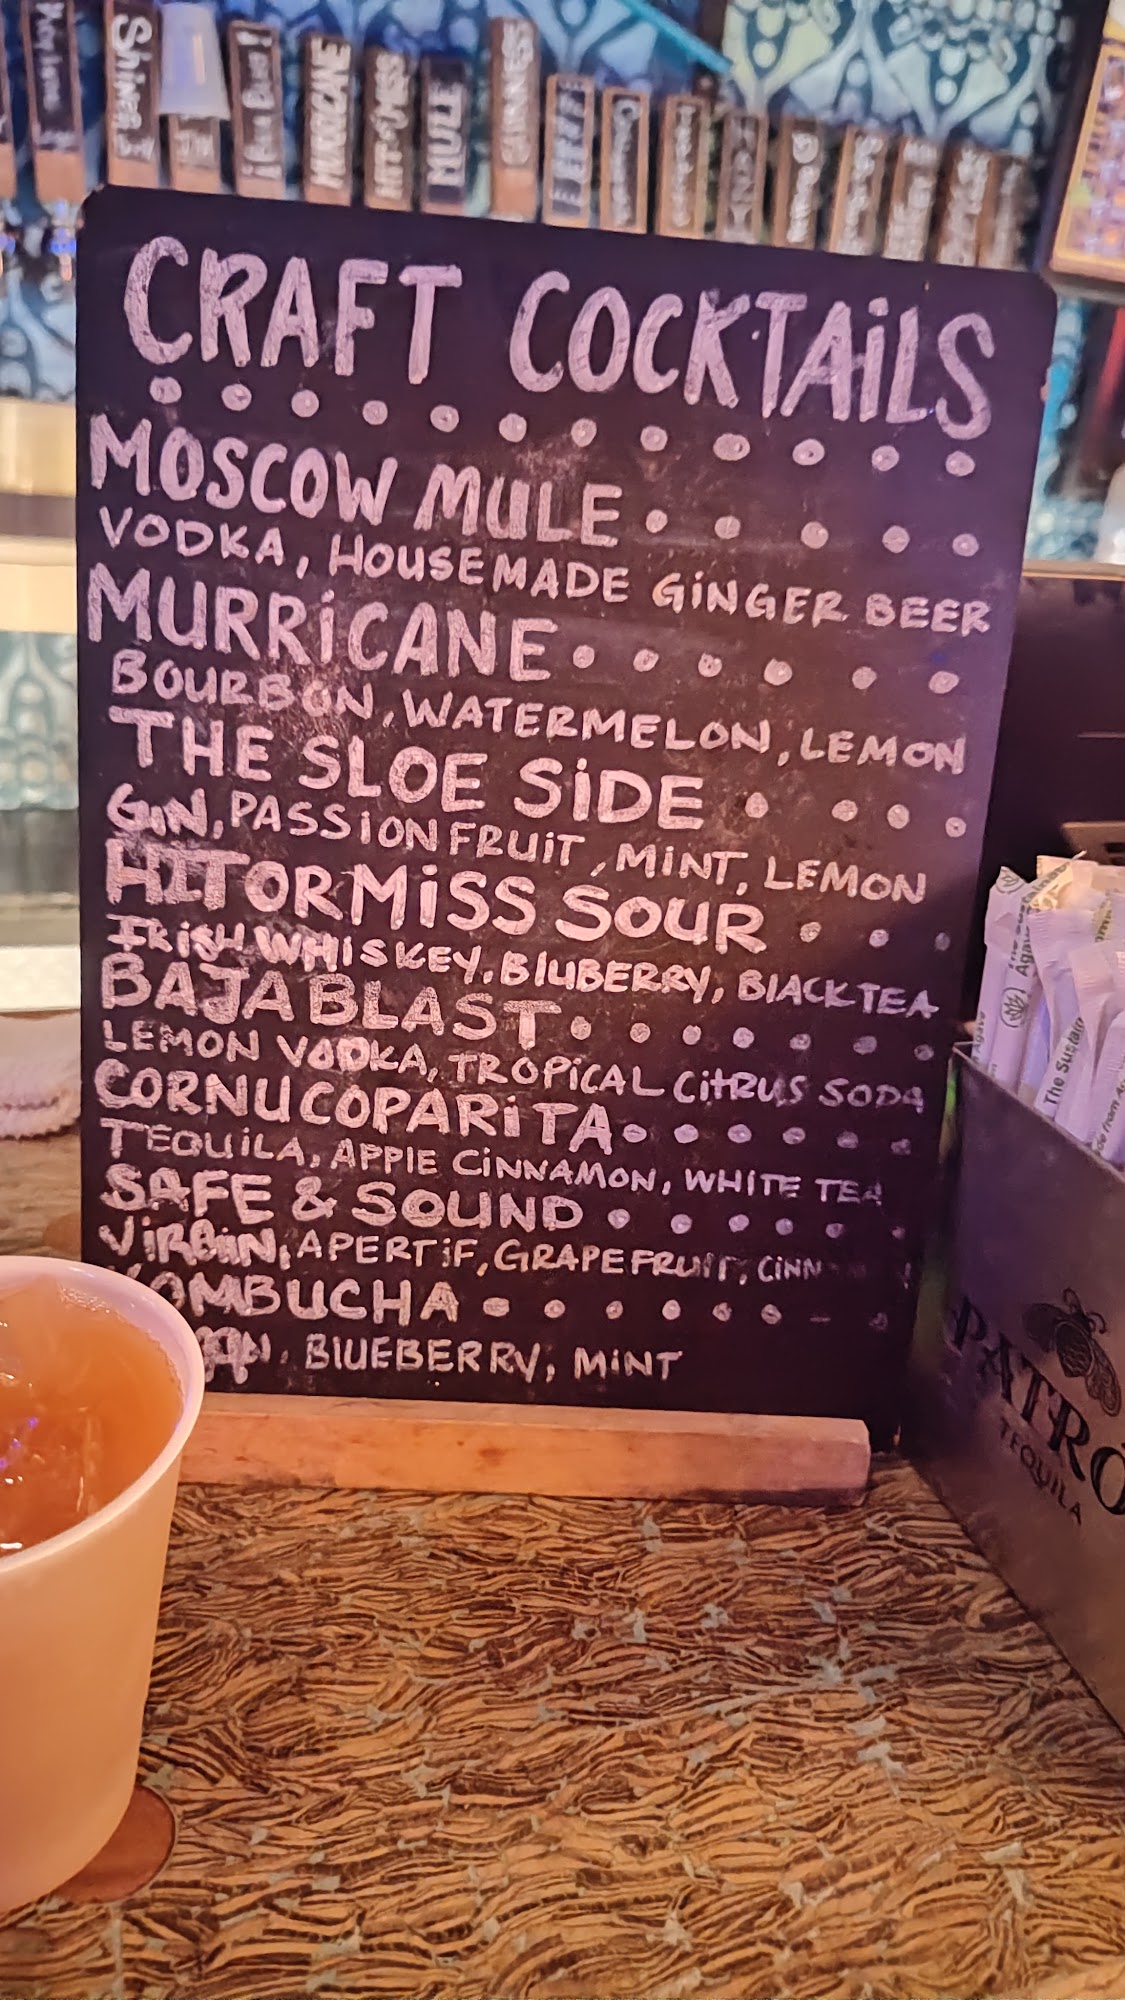 Shiner
MURRICANE
HIT OR MISS
MULE
GUINNESS
CRAFT COCKTAiLS
MOSCOW MULE
VODKA, HOUSEMADE GiNGER BEER
MURRiCANE
BOURBON, WATERMELON, LEMON
THE SLOE SiDE
GiN, PASSiONFRUiT, MiNT, LEMON
HIT OR MiSS SOUR
IRiSH WHiSKEY, BlUBERRY, BlACK TEA
BAJA BLAST
LEMON VODKA, TROPiCAL CiTRUS SODA
CORNUCOPARiTA
TEQUiLA, APPlE CiNNAMON, WHITE TEA
SAFE & SOUND
ViRGiN, APERTiF, GRAPEFRUiT,
KOMBUCHA
BlUEBERRY, MiNT
The Sustain
Agave
PATRÓ
TEQUILA